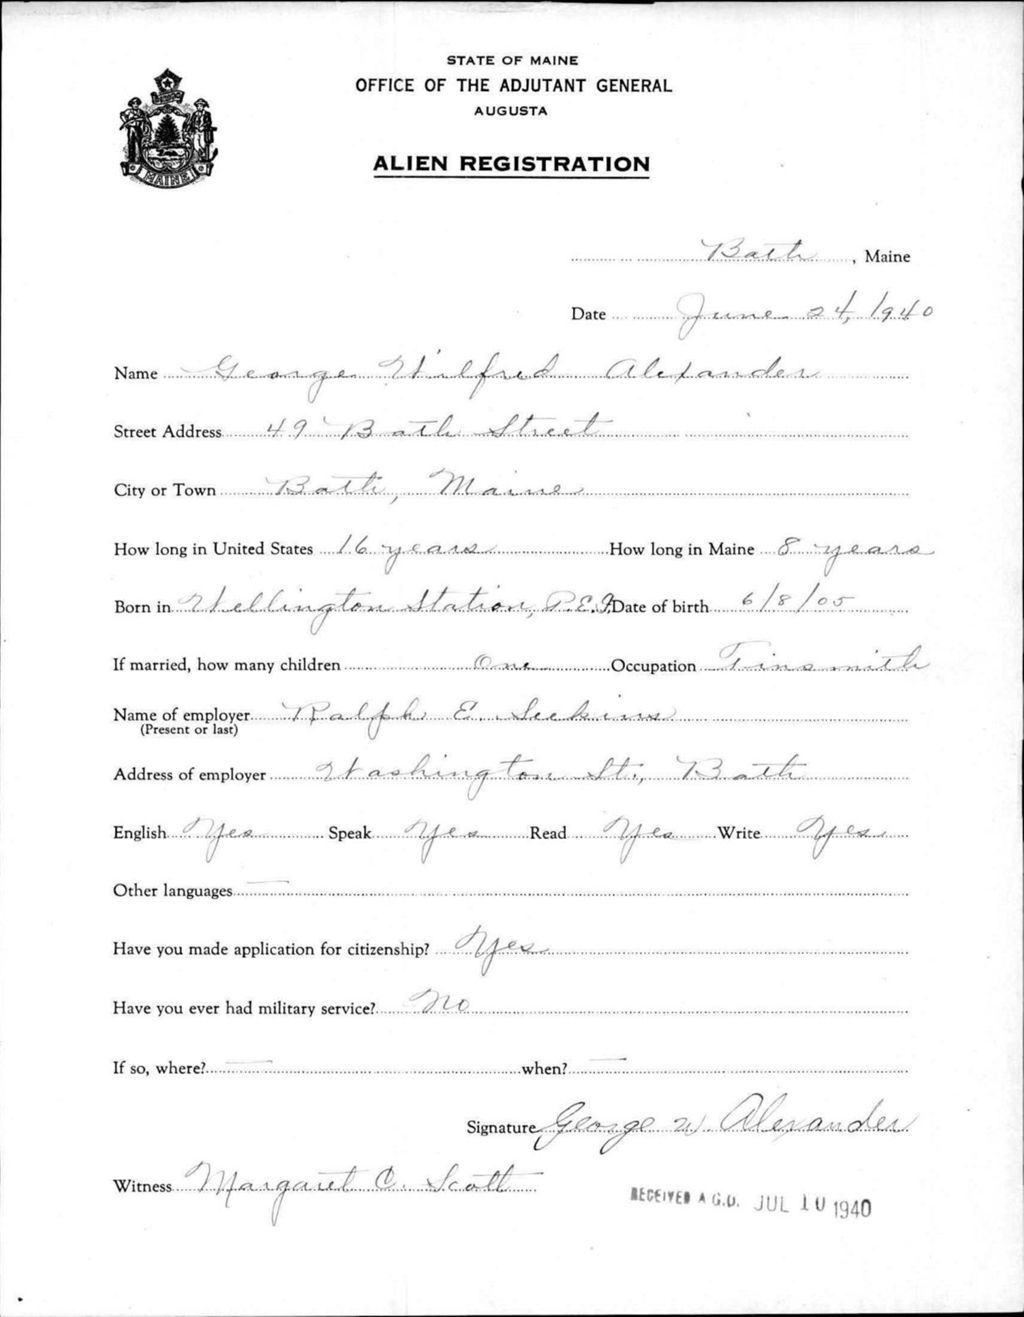 STATE OF MAINE
OFFICE OF THE ADJUTANT GENERAL
AUGUSTA
ALIEN REGISTRATION
MAINE
Bath, Maine
Date June 24, 1940
Name George Wilfred Alexander
Street Address 49 Bath Street
City or Town Bath, Maine
How long in United States 16 years How long in Maine 8 years
Born in Wellington Station, P.E.I. Date of birth 6/8/05
If married, how many children One Occupation Tinsmith
Name of employer Ralph E. Seekins
(Present or last)
Address of employer Washington St., Bath
English Yes Speak Yes Read Yes Write Yes
Other languages —
Have you made application for citizenship? Yes
Have you ever had military service? No
If so, where? — when? —
Signature George W. Alexander
Witness Margaret C. Scott
RECEIVED A.G.O. JUL 10 1940